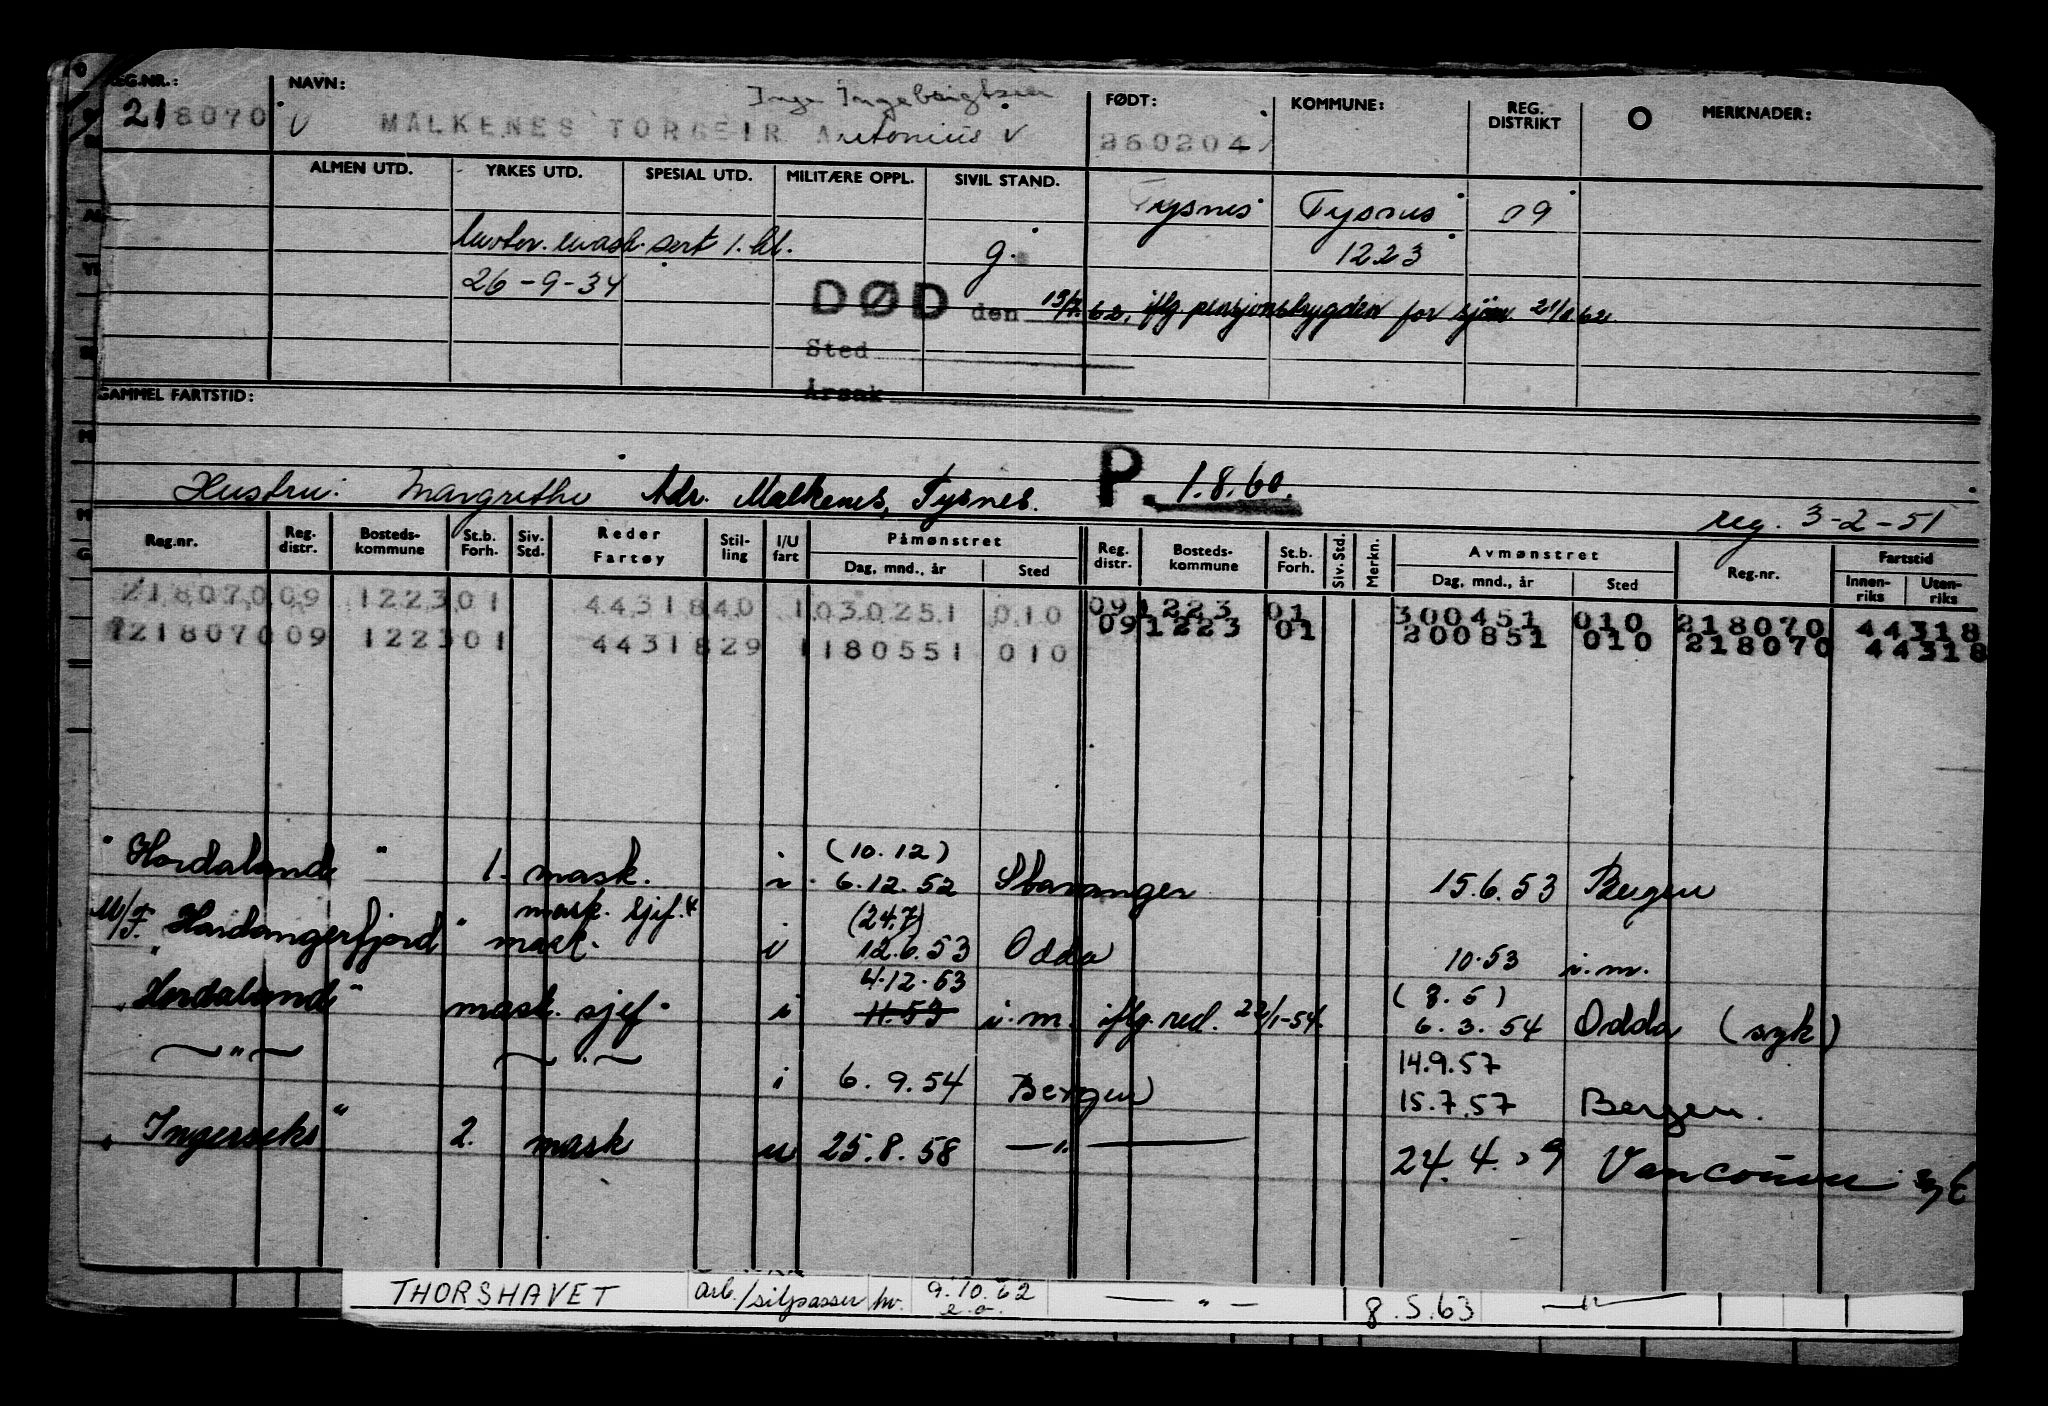 REG.NR.: NAVN: FØDT: KOMMUNE: REG. DISTRIKT MERKNADER:
Inge Ingebrigtsen
218070 MALKENES TORGEIR Antonius 260204
ALMEN UTD. YRKES UTD. SPESIAL UTD. MILITÆRE OPPL. SIVIL STAND.
Tysnes Tysnes 09
mask. sert 1. kl. g. 1223
26-9-34
DØD den 62, iflg. pensjonstrygden for sjøm. 62.
Sted
Årsak
GAMMEL FARTSTID:
Hustru: Margrethe Adr. Malkenes, Tysnes. P. 1.8.60.
reg. 3-2-51
Reg.nr. Reg. distr. Bosteds- kommune St.b. Forh. Siv. Std. Reder Fartøy Stil- ling I/U fart Påmønstret Reg. distr. Bosteds- kommune St.b. Forh. Siv.Std. Merkn. Avmønstret Reg.nr. Fartstid
Dag, mnd., år Sted Dag, mnd., år Sted Innen- riks Uten- riks
218070 09 1223 01 44318 40 1 030251 010 09 1223 01 300451 010 218070 44318
218070 09 1223 01 44318 29 1 180551 010 09 1223 01 200851 010 218070 44318
(10.12)
"Hordaland" 1. mask. i 6.12.52 Stavanger 15.6.53 Bergen
mask. sjef. (24.7)
M/F. Hardangerfjord" mask. i 12.6.53 Odda 10.53 i.m.
4.12.53 (8.5)
"Hordaland" mask. sjef. i 11.53 i.m. iflg. red. 22/1-54. 6.3.54 Odda (syk)
—"— —"— 14.9.57
i 6.9.54 Bergen 15.7.57 Bergen.
"Ingerseks" 2. mask u 25.8.58 —"— 24.4.59 Vancouver syk
THORSHAVET arb./silpasser hv. 9.10.62 —"— 8.5.63 —"—
e.o.